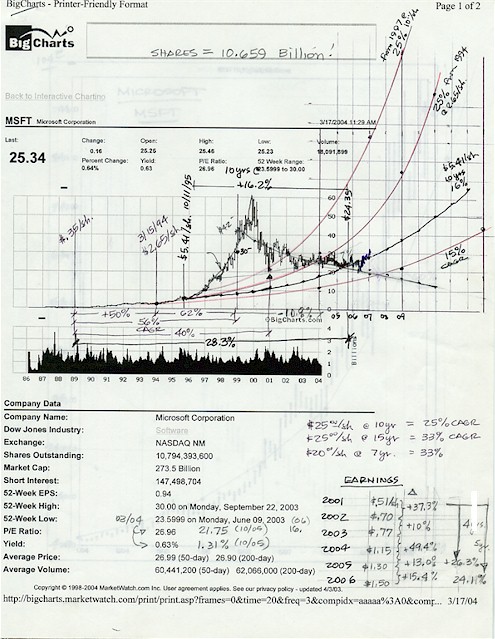 BigCharts - Printer-Friendly Format
Page 1 of 2
BigCharts
SHARES = 10.659 Billion!
from 1987 @
25% from 1994
@ 2.65/sh.
Back to Interactive Charting
MICROSOFT
MSFT
MSFT Microsoft Corporation
3/17/2004 11:29 AM
Last: Change: Open: High: Low: Volume:
25.34 0.16 25.25 25.46 25.23
Percent Change: Yield: P/E Ratio: 52 Week Range:
0.64% 0.63 26.96 23.5999 to 30.00
10 yrs @
+16.2%
$5.41/sh
10 yrs
16%
$.35/sh.
3/15/94
$2.65/sh.
$5.41/sh. 10/11/95
$24.35
60
50
40
30
20
10
0
15%
CAGR
+50% 62% -10.8%
©BigCharts.com
05 06 07 08 09
56%
CAGR
40%
28.3%
3
2
1
0
Billions
86 87 88 89 90 91 92 93 94 95 96 97 98 99 00 01 02 03 04
Company Data
Company Name: Microsoft Corporation
Dow Jones Industry: Software
Exchange: NASDAQ NM
Shares Outstanding: 10,794,393,600
Market Cap: 273.5 Billion
Short Interest: 147,498,704
52-Week EPS: 0.94
52-Week High: 30.00 on Monday, September 22, 2003
52-Week Low: 23.5999 on Monday, June 09, 2003 (06)
03/04
P/E Ratio: 26.96 21.75 (10/05) 16.
Yield: 0.63% 1.31% (10/05)
Average Price: 26.99 (50-day) 26.90 (200-day)
Average Volume: 60,441,200 (50-day) 62,066,000 (200-day)
$25.00/sh @ 10yr = 25% CAGR
$25.00/sh @ 15yr = 33% CAGR
$20.00/sh @ 7yr. = 33%
EARNINGS
2001 $.51/sh
+37.3%
2002 $.70
+10%
2003 $.77
+49.4%
2004 $1.15
+13.0%
2005 $1.30
+15.4%
2006 $1.50
+26.3%
24.11%
Copyright © 1998-2004 MarketWatch.com Inc. User agreement applies. See our privacy policy - updated 4/3/03.
http://bigcharts.marketwatch.com/print/print.asp?frames=0&time=20&freq=3&compidx=aaaaa%3A0&comp... 3/17/04